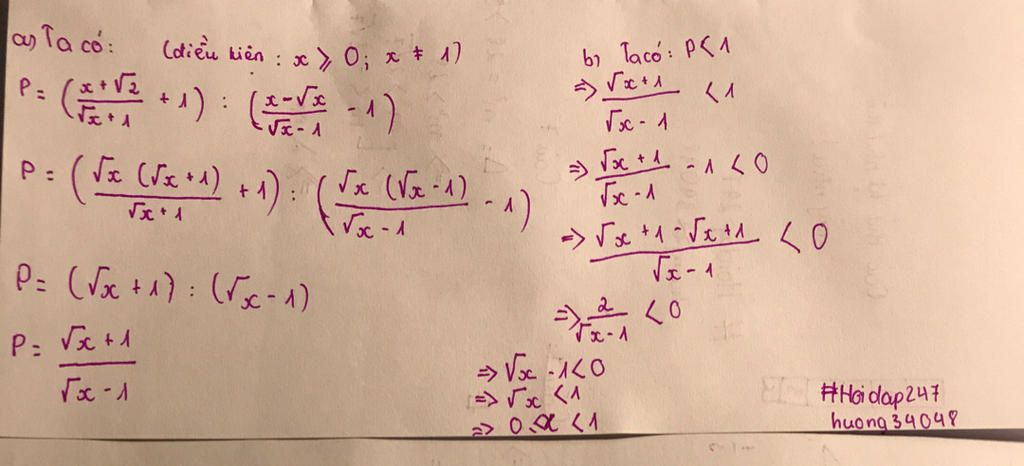 a) Ta có: (điều kiện : x ⩾ 0; x ≠ 1)
P = ((x + √2)/(√x + 1) + 1) : ((x - √x)/(√x - 1) - 1)
P = ((√x (√x + 1))/(√x + 1) + 1) : ((√x (√x - 1))/(√x - 1) - 1)
P = (√x + 1) : (√x - 1)
P = (√x + 1)/(√x - 1)
b) Ta có: P < 1
=> (√x + 1)/(√x - 1) < 1
=> (√x + 1)/(√x - 1) - 1 < 0
=> (√x + 1 - √x + 1)/(√x - 1) < 0
=> 2/(√x - 1) < 0
=> √x - 1 < 0
=> √x < 1
=> 0 x < 1
#Hoidap247
huong34048